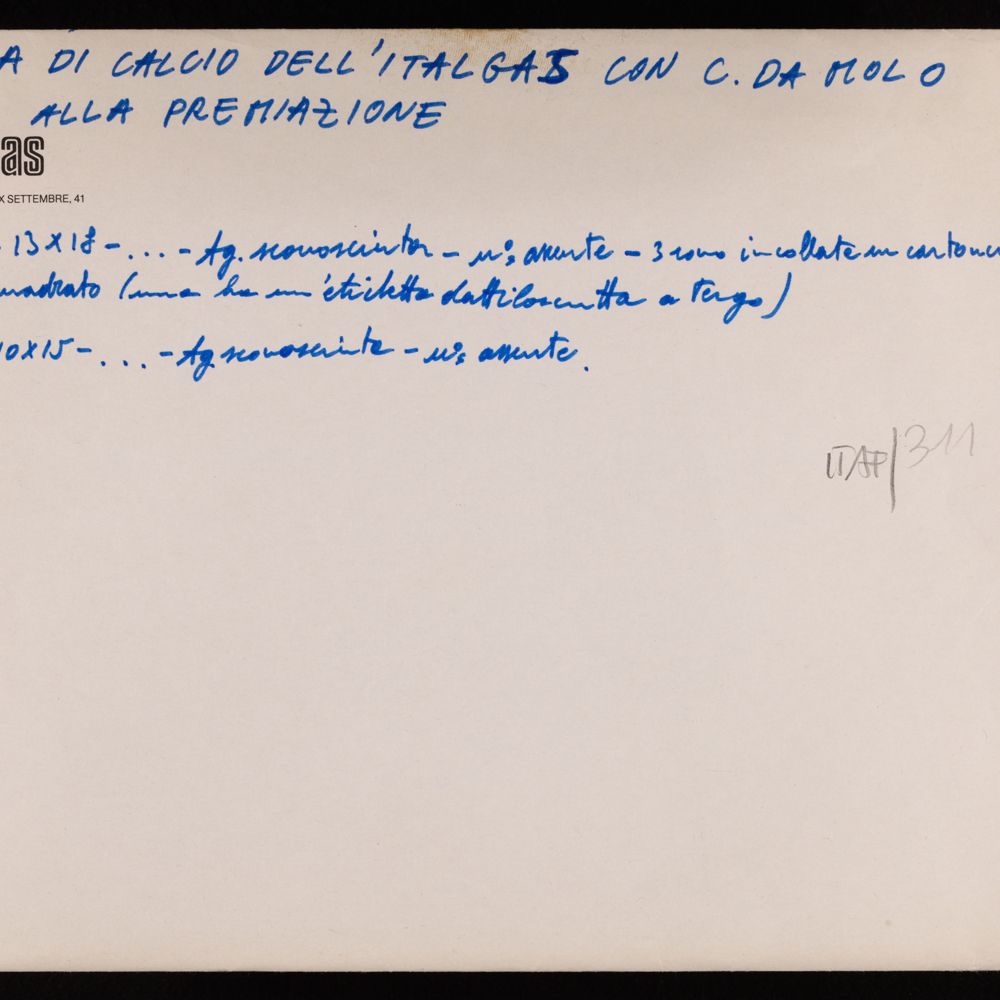 A DI CALCIO DELL'ITALGAS CON C. DA MOLO
ALLA PREMIAZIONE
as
X SETTEMBRE, 41
- 13x18 - ... - Ag. sconosciuta - n.° assente - 3 sono incollate su cartonc
uadrato (una ha un'etichetta dattiloscritta a tergo)
10x15 - ... - Ag sconosciuta - n.° assente.
ITAP/311